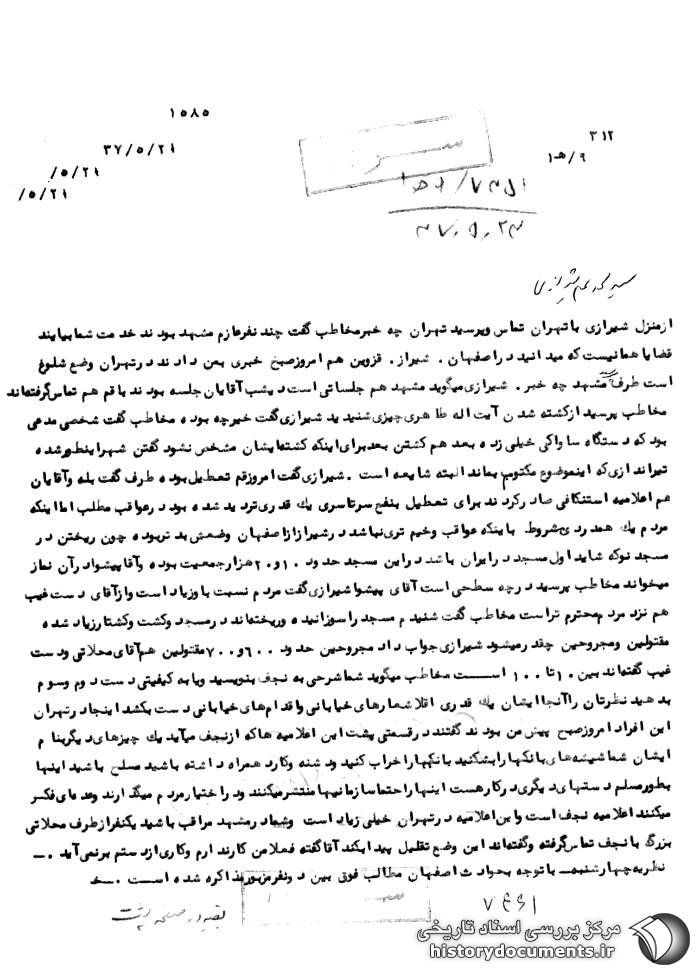 ۱۰۸۵
۳۱۲
۳۷/۵/۲۱
۹/ه‍۱
/۵/۲۱
/۵/۲۱
ازمنزل شیرازی با تهران تماس وپرسید تهران چه خبرمخاطب گفت چند نفرعازم مشهد بودند خدمت شما بیایند
قضایا همانیست که میدانید دراصفهان . شیراز . قزوین هم امروزصبح خبری بمن دادند درتهران وضع شلوغ
است طرف گفت مشهد چه خبر . شیرازی میگوید مشهد هم جلساتی است دیشب آقایان جلسه بودند باقم هم تماس گرفته‌اند
مخاطب پرسید ازکشته شدن آیت اله طاهری چیزی شنیدید شیرازی گفت خیرچه بوده مخاطب گفت شخصی مدعی
بود که دستگاه ساواکی خیلی زده بعد هم کشتن بعد برای اینکه کشته‌ایشان مشخص نشود گفتن شهراینطورشده
تیراندازی که اینموضوع مکتوم بماند البته شایعه است . شیرازی گفت امروزقم تعطیل بوده طرف گفت بله وآقایان
هم اعلامیه استنکافی صادرکردند برای تعطیل بنفع سرتاسری یك قدری تردید شده بود درعواقب مطلب اما اینکه
مردم یك همدردی مشروط باینکه عواقب وخیم تری نباشد درشیرازازاصفهان وضعش بدتربوده چون ریختن در
مسجد نوکه شاید اول مسجد درایران باشد دراین مسجد حدود ۱۰و۲۰هزارجمعیت بوده وآقا پیشوادرآن نماز
میخواند مخاطب پرسید درچه سطحی است آقای پیشوا شیرازی گفت مردم نسبت باوزیاد است وازآقای دست غیب
هم نزد مردم محترم تراست مخاطب گفت شنیدم مسجد راسوزانیده وریخته‌اند درمسجد وکشت وکشتارزیاد شده
مقتولین ومجروحین چقدرمیشود شیرازی جواب داد مجروحین حدود ۶۰۰و۷۰۰مقتولین هم آقای محلاتی ودست
غیب گفته‌اند بین ۱۰تا۱۰۰ است مخاطب میگوید شما شرحی به نجف بنویسید ویا به کیفیتی دست دوم وسوم
بدهید نظرتان راآنجا ایشان یك قدری اقلا شعارهای خیابانی واقدام‌های خیابانی دست بکشد اینجا درتهران
این افراد امروزصبح پیش من بودند گفتند درقسمتی پشت این اعلامیه هاکه ازنجف میآید یك چیزهای دیگربنام
ایشان شما شیشه‌های بانکهارا بشکنید بانکهارا خراب کنید ودشنه وکارد همراه داشته باشید مسلح باشید اینها
بطورمسلم دستهای دیگری درکارهست اینهارا حتما سازمانیها منتشرمیکنند ودراختیارمردم میگذارند وعده‌ای فکر
میکنند اعلامیه نجف است واین اعلامیه درتهران خیلی زیاد است وشما درمشهد مراقب باشید یکنفرازطرف محلاتی
بزرگ با نجف تماس گرفته وگفته‌اند این وضع تقلیل پیدا بکند آقا گفته فعلا من کارندارم وکاری ازدستم برنمی آید .ــ
نظریه‌چهارشنبه‌ــ با توجه بحوادث اصفهان مطالب فوق بین دونفرمزبورمذاکره شده است .ــ‌خـ
بقیه در صفحه پشت
مرکز بررسی اسناد تاریخی
historydocuments.ir